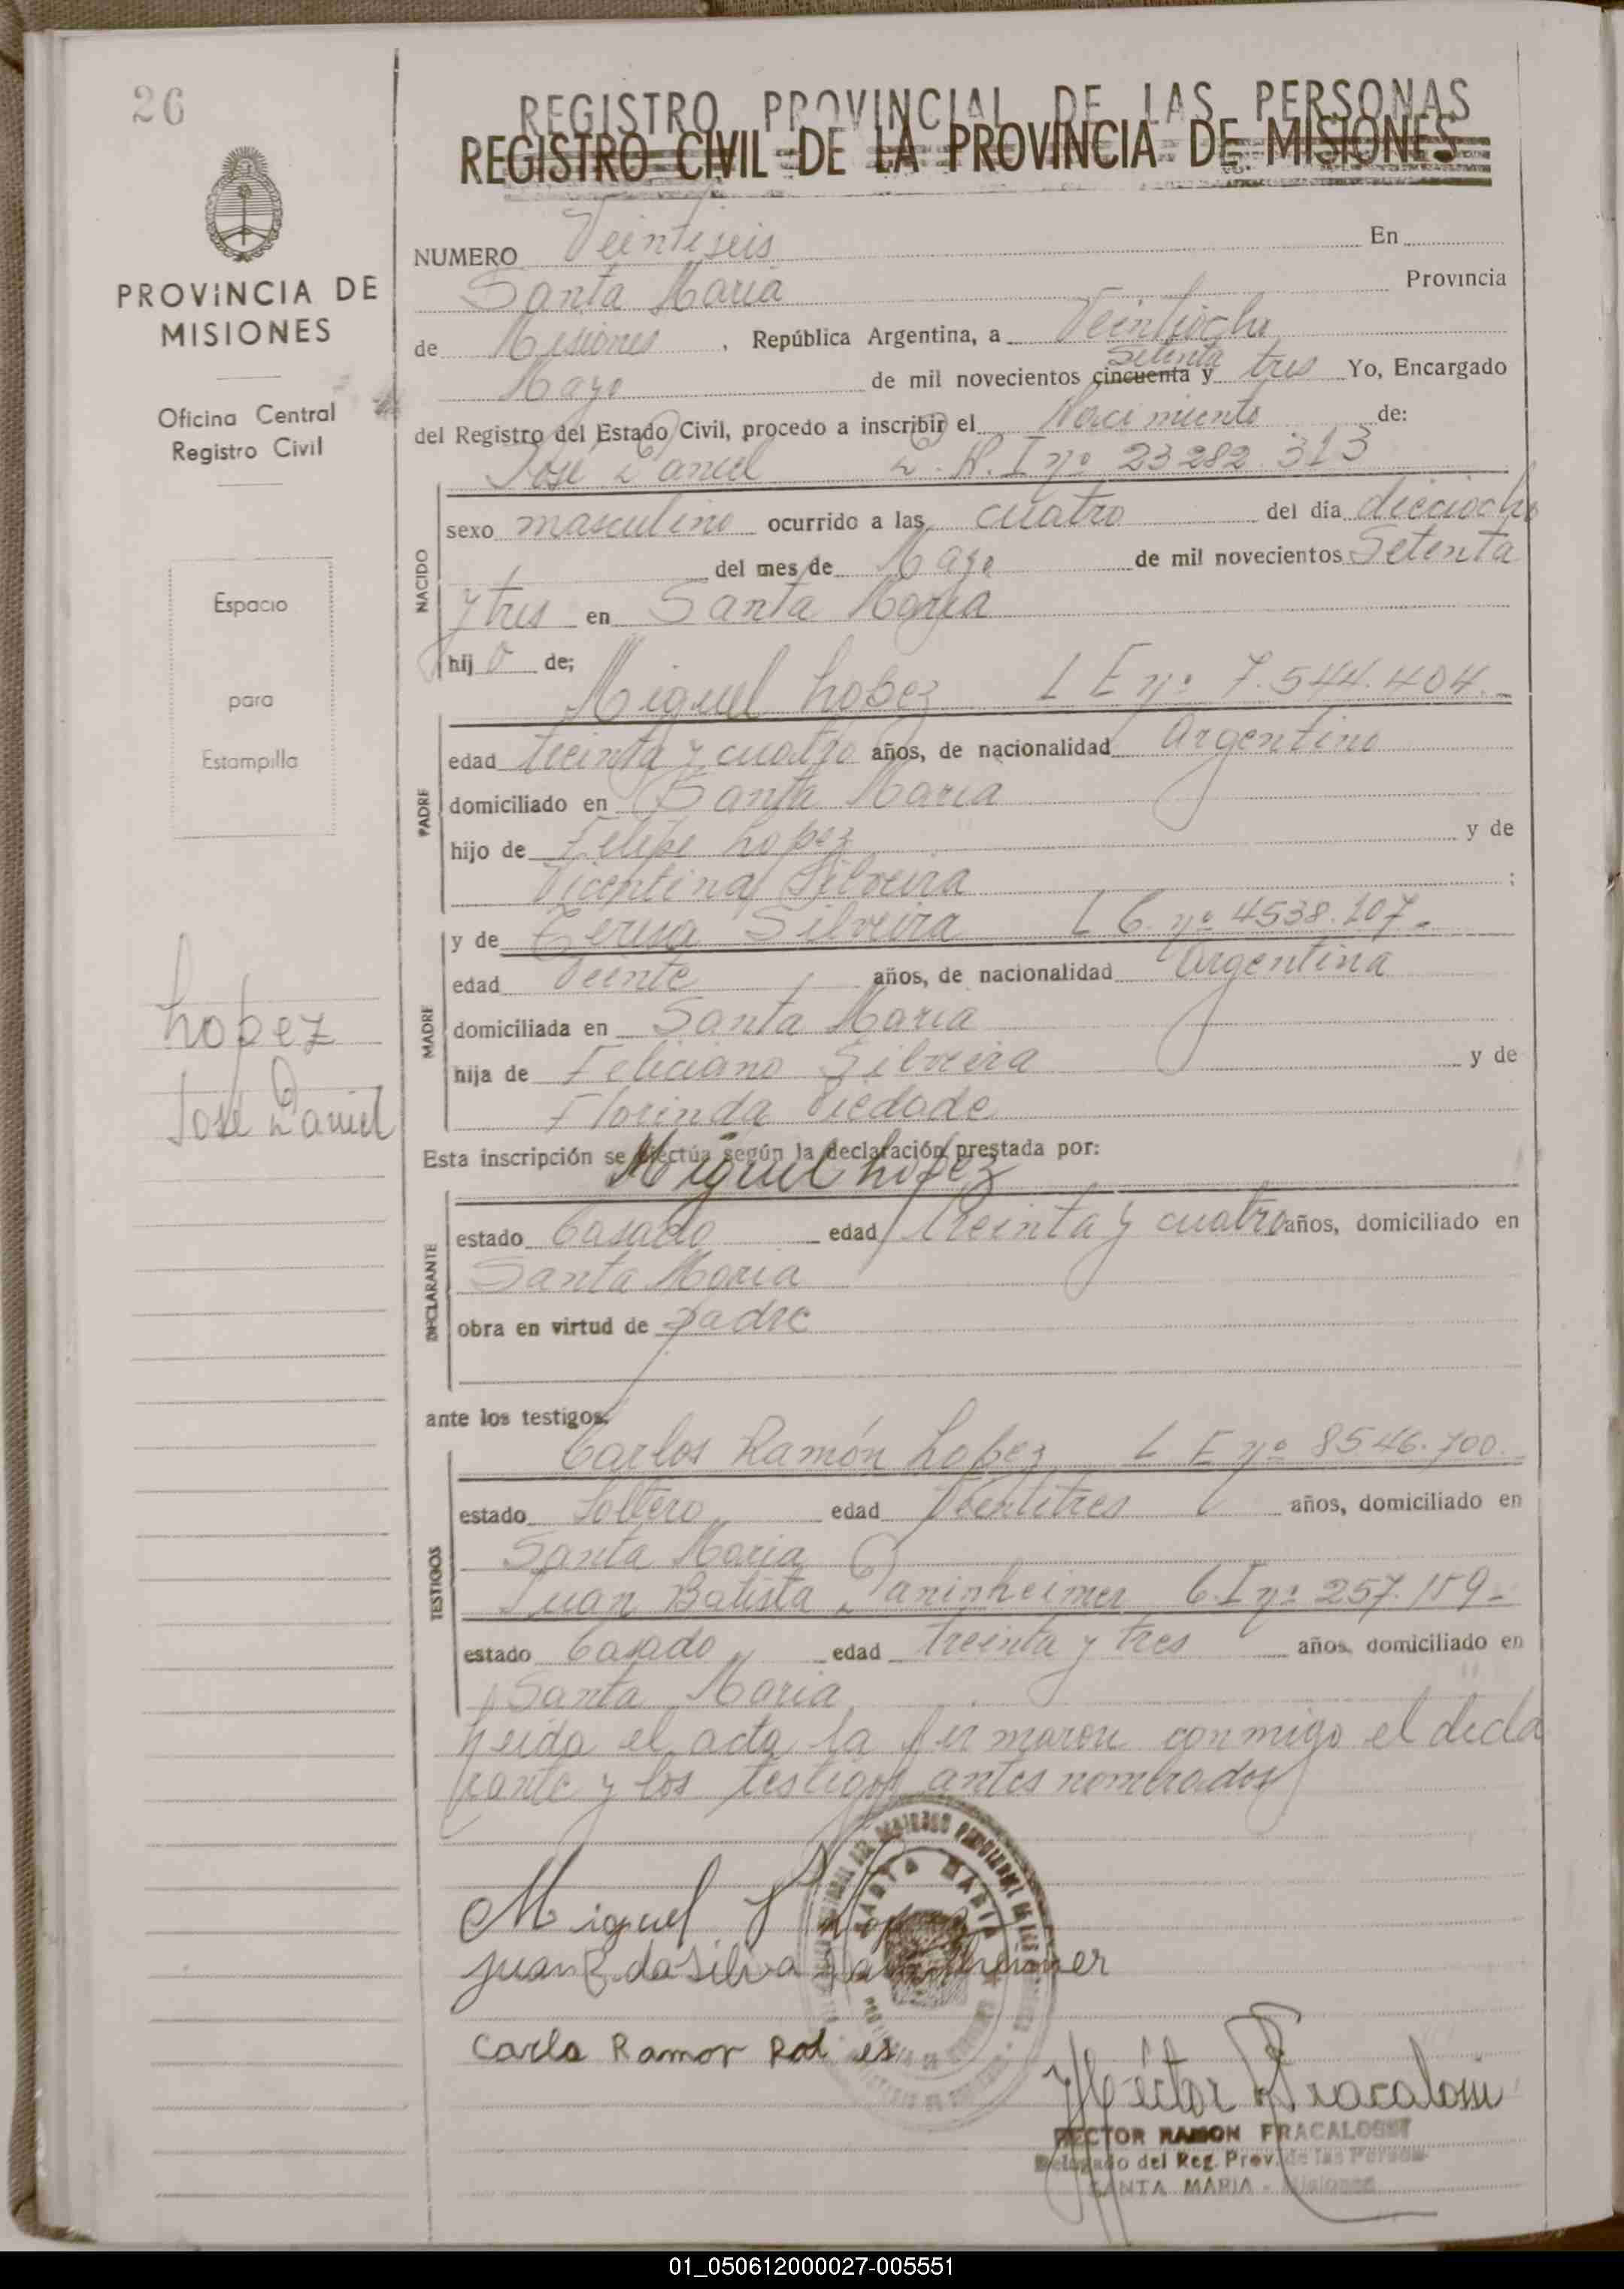 26
REGISTRO PROVINCIAL DE LAS PERSONAS
REGISTRO CIVIL DE LA PROVINCIA DE MISIONES
PROVINCIA DE
MISIONES
Oficina Central
Registro Civil
Espacio
para
Estampilla
Lopez
José Daniel
NUMERO Veintiseis En
Santa Maria Provincia
de Misiones, República Argentina, a Veintiocho
Mayo de mil novecientos cincuenta Setenta y tres Yo, Encargado
del Registro del Estado Civil, procedo a inscribir el Nacimiento de:
José Daniel D.N.I nº 23282.313
NACIDO
sexo masculino ocurrido a las cuatro del dia dieciocho
del mes de Mayo de mil novecientos Setenta
y tres en Santa Maria
hijo de;
Miguel Lopez L E nº 7.544.404.-
PADRE
edad treinta y cuatro años, de nacionalidad Argentino
domiciliado en Santa Maria
hijo de Felipe Lopez y de
Vicentina Silveira ;
MADRE
y de Teresa Silveira L C. nº 4538.107-
edad Veinte años, de nacionalidad Argentina
domiciliada en Santa Maria
hija de Feliciano Silveira y de
Florinda Piedade
Esta inscripción se efectúa según la declaración prestada por:
Miguel Lopez
DECLARANTE
estado Casado edad treinta y cuatro años, domiciliado en
Santa Maria
obra en virtud de padre
ante los testigos.
Carlos Ramón Lopez L E nº 8546.700.
TESTIGOS
estado Soltero edad Veintitres años, domiciliado en
Santa Maria
Juan Batista Daninheimer C.I nº 257.159-
estado Casado edad treinta y tres años, domiciliado en
Santa Maria
Leida el acta la firmaron conmigo el decla
rante y los testigos antes nombrados
Miguel
SANTA MARIA
Juan B. da Silva
Carlo Ramor
Héctor R Fracalossi
HECTOR RAMON FRACALOSSI
Delegado del Reg. Prov. de las Person
SANTA MARIA - Misiones
01_050612000027-005551